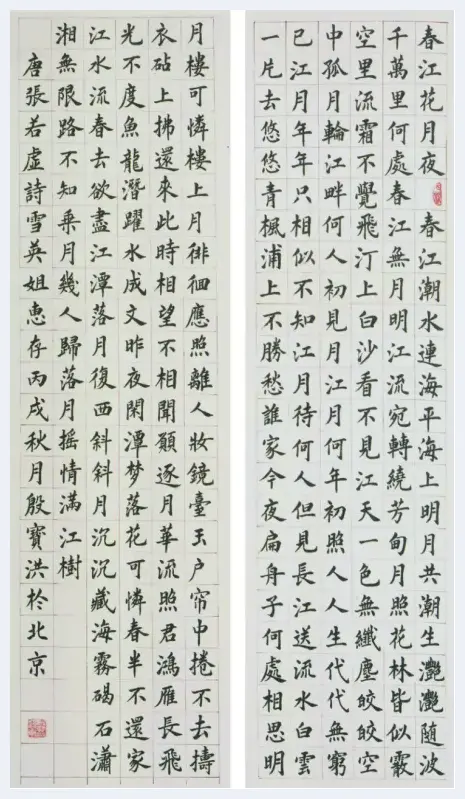 春江花月夜 春江潮水連海平海上明月共潮生灩灩隨波
千萬里何處春江無月明江流宛轉繞芳甸月照花林皆似霰
空里流霜不覺飛汀上白沙看不見江天一色無纖塵皎皎空
中孤月輪江畔何人初見月江月何年初照人人生代代無窮
已江月年年只相似不知江月待何人但見長江送流水白雲
一片去悠悠青楓浦上不勝愁誰家今夜扁舟子何處相思明
月樓可憐樓上月徘徊應照離人妝鏡臺玉户帘中捲不去擣
衣砧上拂還來此時相望不相聞願逐月華流照君鴻雁長飛
光不度魚龍潛躍水成文昨夜閑潭梦落花可憐春半不還家
江水流春去欲盡江潭落月復西斜斜月沉沉藏海霧碣石瀟
湘無限路不知乘月幾人歸落月摇情滿江樹
唐張若虛詩雪英姐惠存丙戌秋月殷寶洪於北京